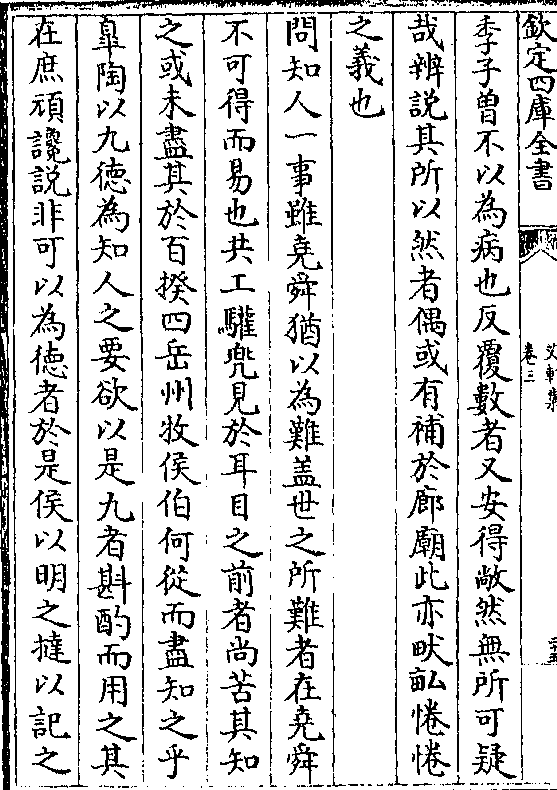 欽定四庫全書
艾軒集
卷三
季子曽不以為病也反覆數者又安得敞然無所可疑
哉辨説其所以然者偶或有補於廊廟此亦畎畝惓惓
之義也
問知人一事雖堯舜猶以為難盖世之所難者在堯舜
不可得而易也共工驩兜見於耳目之前者尚苦其知
之或未盡其於百揆四岳州牧侯伯何從而盡知之乎
臯陶以九徳為知人之要欲以是九者斟酌而用之其
在庶頑讒説非可以為徳者於是侯以明之撻以記之